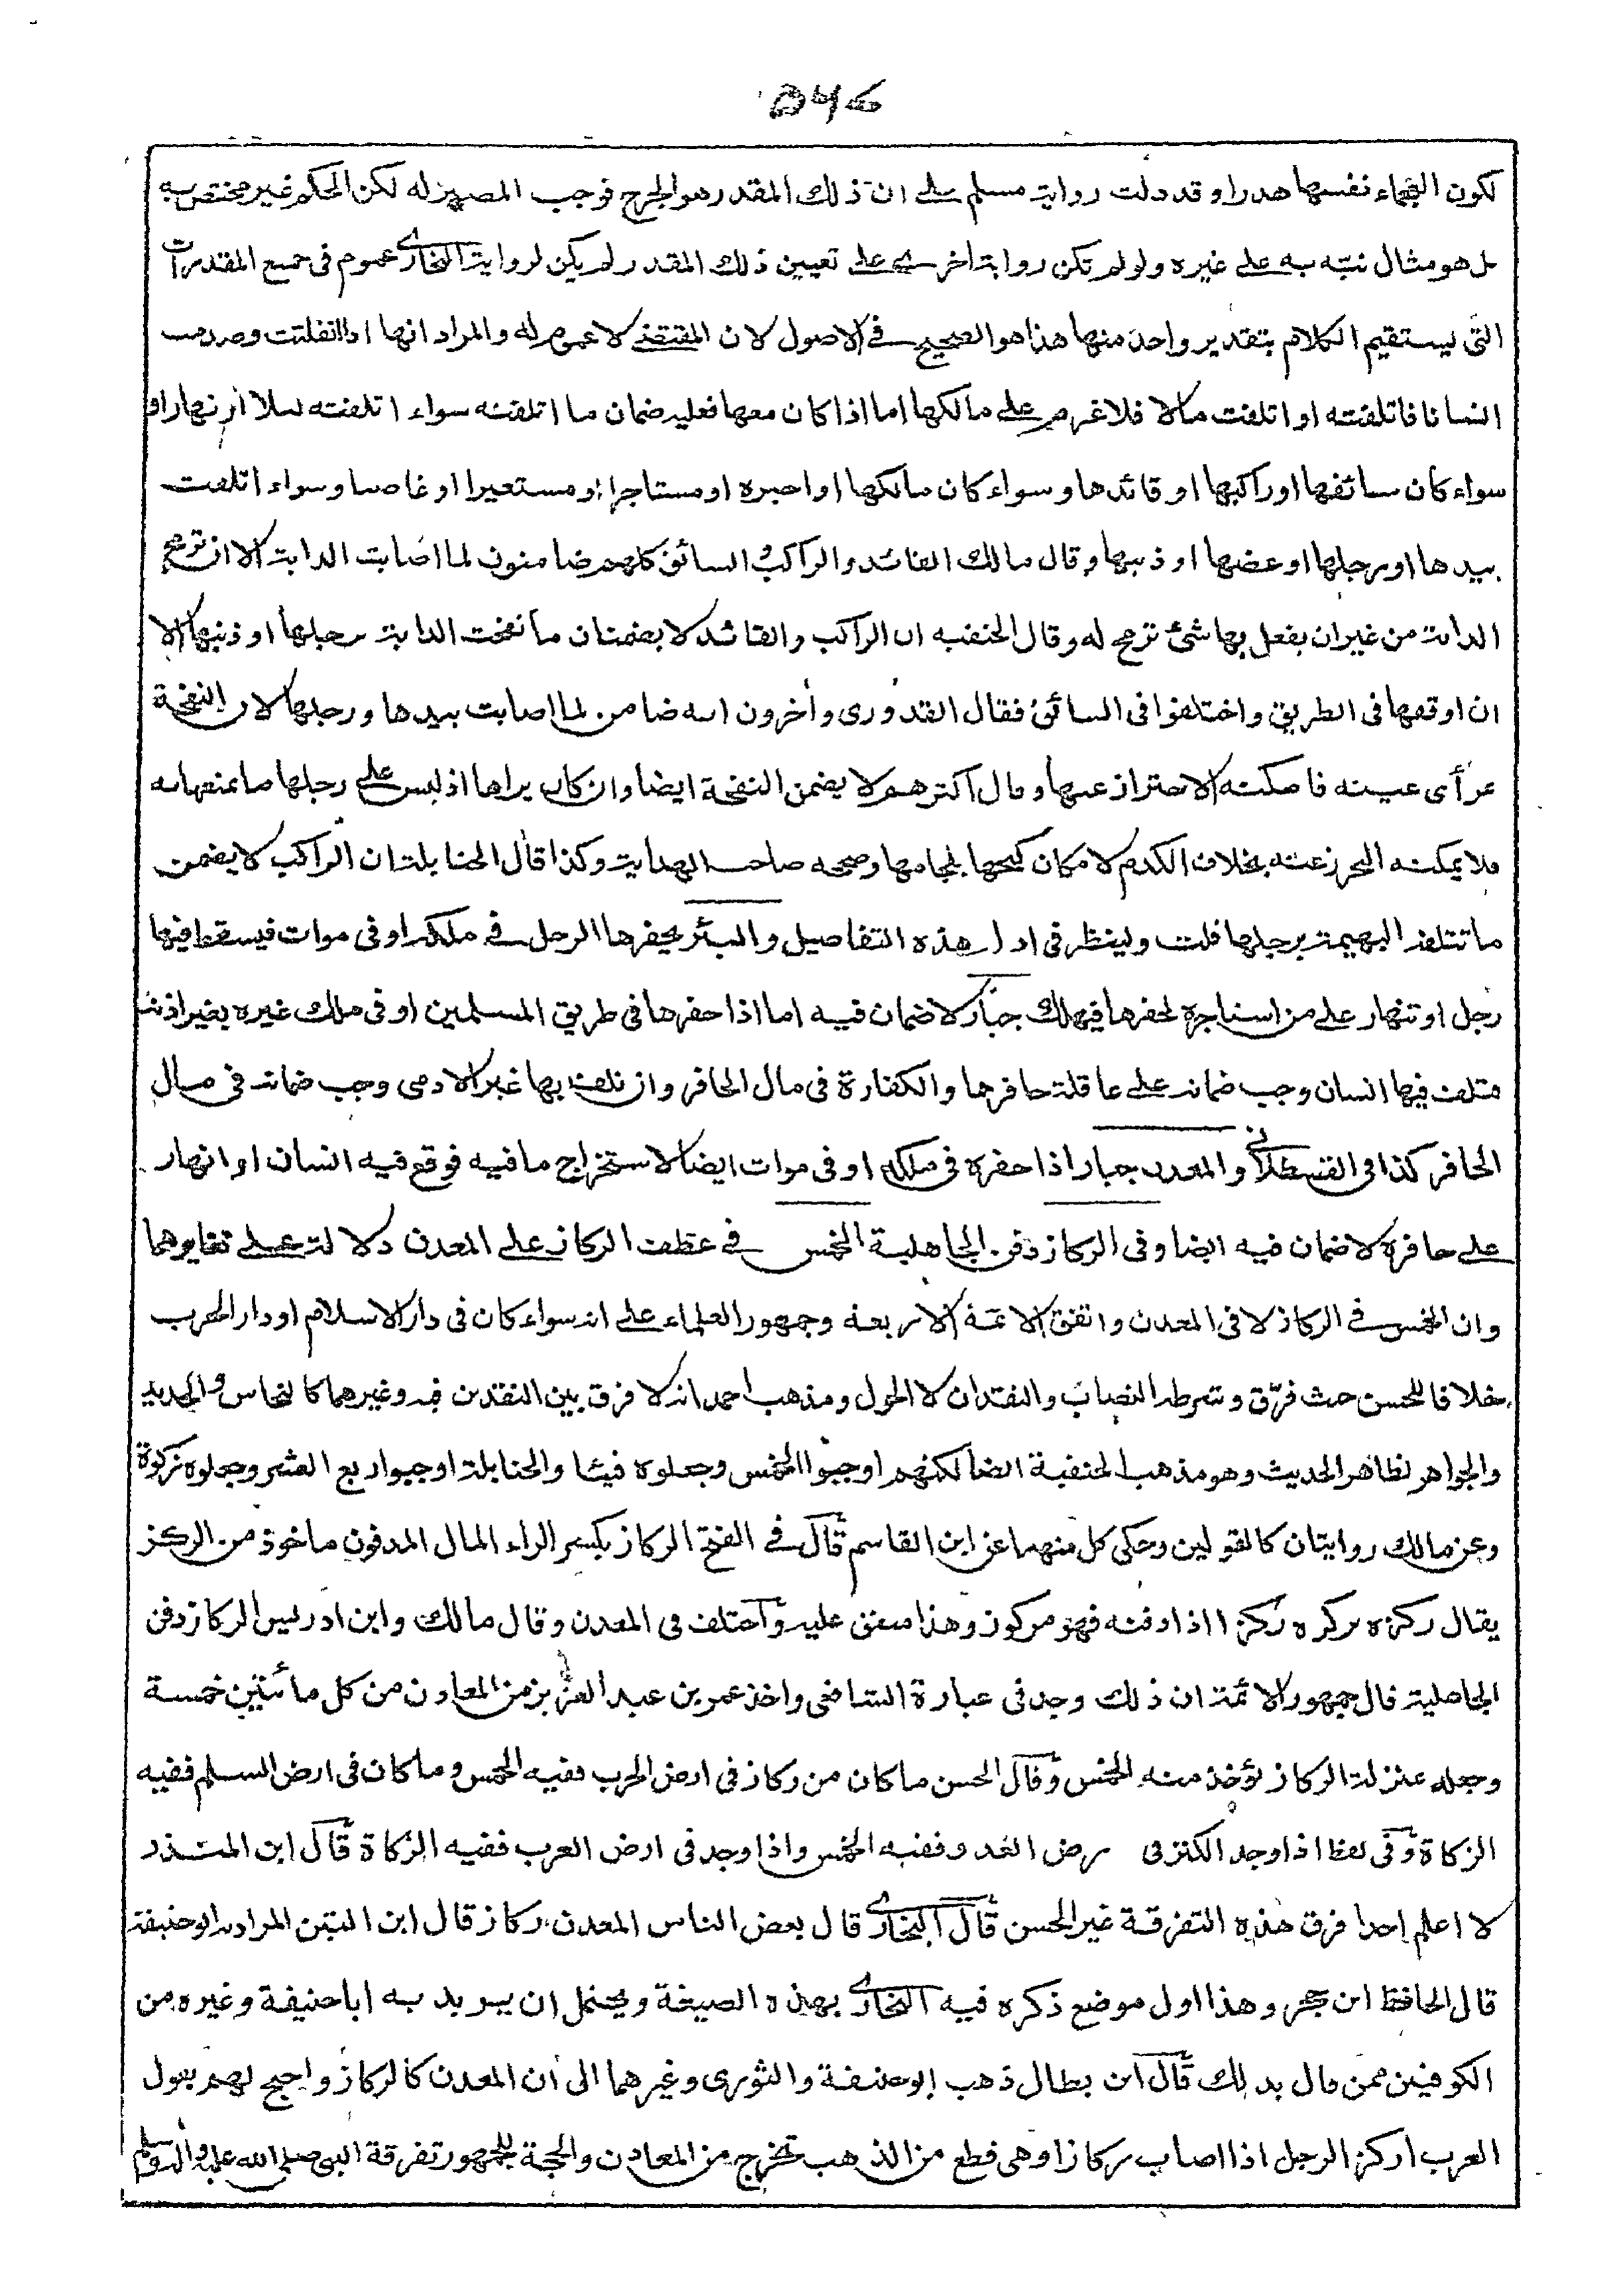 ۵۴۶
لكون العجماء نفسها هدرا وقد دلت رواية مسلم على ان ذلك المقدر هو الجرح فوجب المصير له لكن الحكم غير مختص به
بل هو مثال نبّه به على غيره ولو لم تكن رواية اخرى على تعيين ذلك المقدر لم يكن لرواية البخارى عموم فى جميع المقدرات
التى يستقيم الكلام بتقدير واحد منها هذا هو الصحيح فى الاصول لان المقتضى لا عموم له والمراد انها اذا انفلتت وصدمت
انسانا فاتلفته او اتلفت مالا فلا غرم على مالكها اما اذا كان معها فعليه ضمان ما اتلفته سواء اتلفته ليلا او نهارا و
سواء كان سائقها او راكبها او قائدها وسواء كان مالكها او اجيره او مستاجرا او مستعيرا او غاصبا وسواء اتلفت
بيدها او برجلها او عضها او ذنبها وقال مالك القائد والراكب والسائق كلهم ضامنون لما اصابت الدابة الا ان ترمح
الدابة من غير ان يفعل بها شئ ترمح له وقال الحنفيه ان الراكب والقائد لا يضمنان ما نفحت الدابة برجلها او ذنبها الا
ان اوقفها فى الطريق واختلفوا فى السائق فقال القدورى وآخرون انه ضامن لما اصابت بيدها ورجلها لان النفحة
بمرأى عينه فامكنه الاحتراز عنها وقال اكثرهم لا يضمن النفحة ايضا وان كان يراها اذ ليس على رجلها ما يمنعها به
فلا يمكنه التحرز عنه بخلاف الكدم لامكان كبحها بلجامها وصححه صاحب الهداية وكذا قال الحنابلة ان الراكب لا يضمن
ما تتلفه البهيمة برجلها قلت ولينظر فى ادلة هذه التفاصيل والبئر يحفرها الرجل فى ملكه او فى موات فيسقط فيها
رجل او تنهار على من استاجره لحفرها فيهلك جبار لا ضمان فيه اما اذا حفرها فى طريق المسلمين او فى ملك غيره بغير اذنه
فتلف فيها انسان وجب ضمانه على عاقلة حافرها والكفارة فى مال الحافر وان تلف بها غير الادمى وجب ضمانه فى مال
الحافر كذا فى القسطلانى والمعدن جبار اذا حفره فى ملكه او فى موات ايضا لاستخراج ما فيه فوقع فيه انسان او انهار
على حافره لا ضمان فيه ايضا وفى الركاز دفن الجاهلية الخمس فى عطف الركاز على المعدن دلالة على تغايرهما
وان الخمس فى الركاز لا فى المعدن واتفق الائمة الاربعة وجمهور العلماء على انه سواء كان فى دار الاسلام او دار الحرب
خلافا للحسن حيث فرّق وشرطه النصاب والنقدان لا الحول ومذهب احمد انه لا فرق بين النقدين فيه وغيرهما كالنحاس والحديد
والجواهر لظاهر الحديث وهو مذهب الحنفية ايضا لكنهم اوجبوا الخمس وجعلوه فيئا والحنابلة اوجبوا ربع العشر وجعلوه زكوة
وعن مالك روايتان كالقولين وحكى كل منهما عن ابن القاسم قال فى الفتح الركاز بكسر الراء المال المدفون ماخوذ من الركز
يقال ركزه يركزه ركزا اذا دفنه فهو مركوز وهذا متفق عليه واختلف فى المعدن وقال مالك وابن ادريس الركاز دفن
الجاهلية قال جمهور الائمة ان ذلك وجد فى عبارة الشافعى واخذ عمر بن عبد العزيز من المعادن من كل مائتين خمسة
وجعله بمنزلة الركاز يؤخذ منه الخمس وقال الحسن ما كان من ركاز فى ارض الحرب ففيه الخمس وما كان فى ارض السلم ففيه
الزكاة وفى لفظ اذا وجد الكنز فى ارض العدو ففيه الخمس واذا وجد فى ارض العرب ففيه الزكاة قال ابن المنذر
لا اعلم احدا فرق هذه التفرقة غير الحسن قال البخارى قال بعض الناس المعدن ركاز قال ابن التين المراد به ابو حنيفة
قال الحافظ ابن حجر وهذا اول موضع ذكره فيه البخارى بهذه الصيغة ويحتمل ان يريد به ابا حنيفة وغيره من
الكوفيين ممن قال بذلك قال ابن بطال ذهب ابو حنيفة والثورى وغيرهما الى أن المعدن كالركاز واحتج لهم بقول
العرب اركز الرجل اذا اصاب ركازا وهى قطع من الذهب تخرج من المعادن والحجة للجمهور تفرقة النبى صلى الله عليه واله وسلم